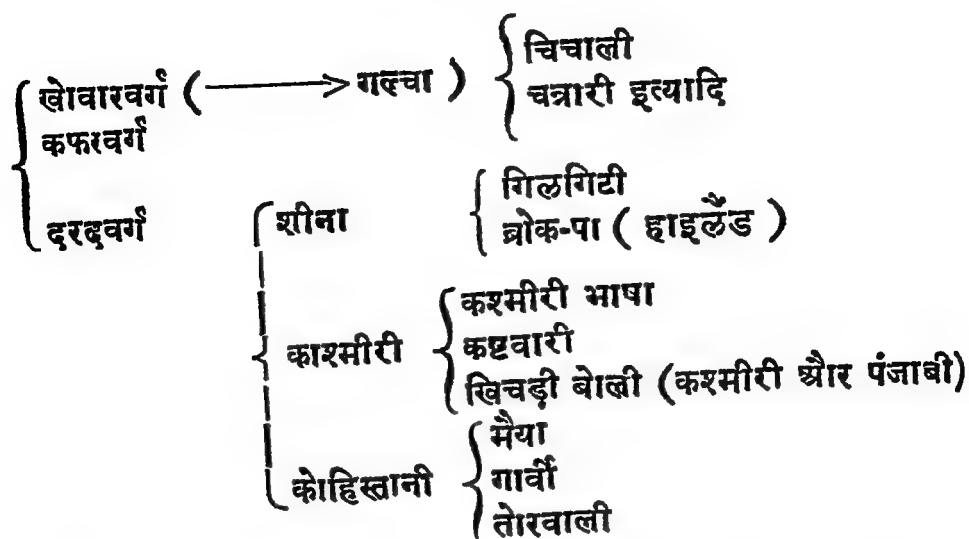 खोवारवर्ग ( ⟶ गल्चा )
चिचाली
चत्रारी इत्यादि
कफरवर्ग
दरदवर्ग
शीना
गिलगिटी
ब्रोक-पा ( हाइलैंड )
काश्मीरी
कश्मीरी भाषा
कष्टवारी
खिचड़ी बोली (कश्मीरी और पंजाबी)
कोहिस्तानी
मैया
गार्वी
तोरवाली